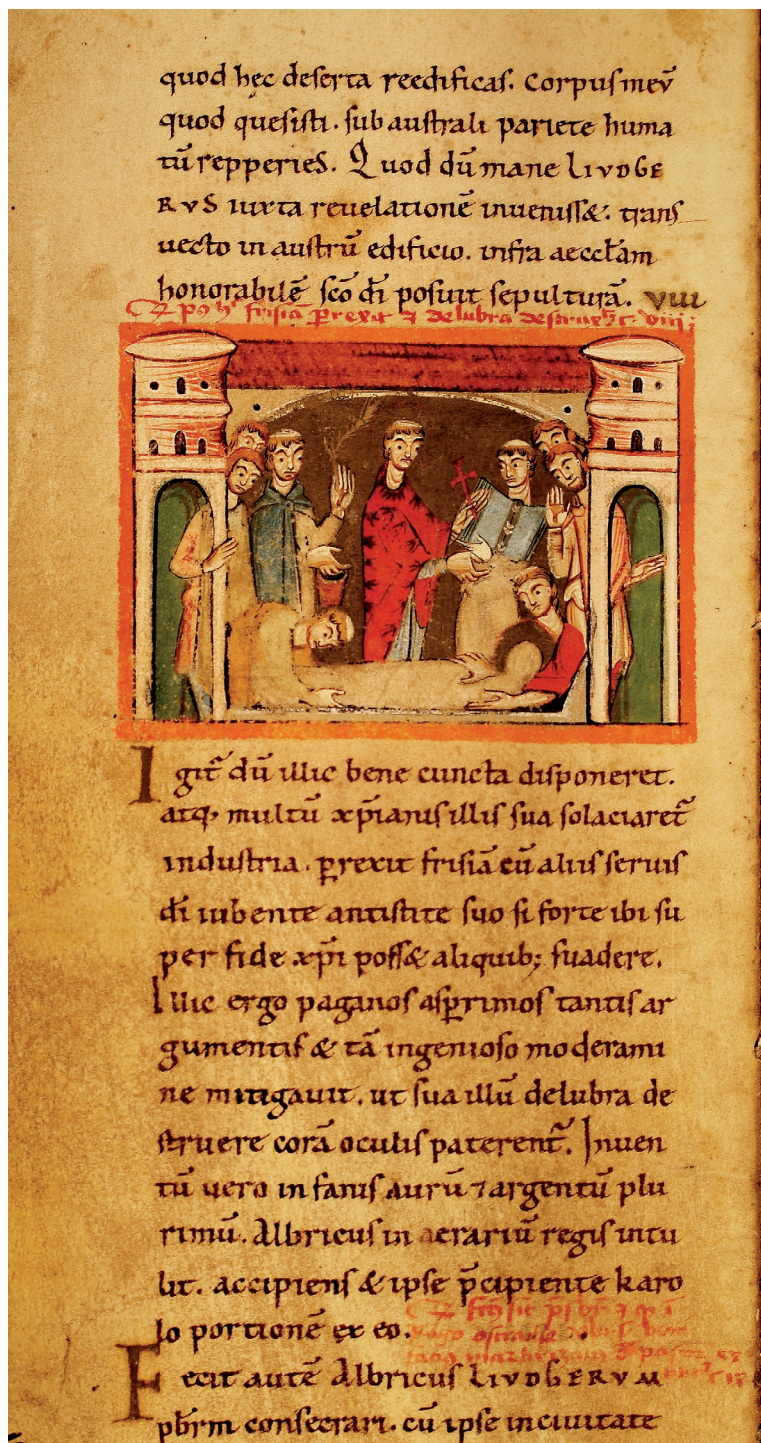 quod hęc deserta reedificas. Corpus meū
quod quesisti. sub australi pariete huma
tū repperies. Quod dū mane LIVDGE
RVS iuxta reuelationē inuenisset. trans
uecto in austrū edificio. infra aecclam
honorabilē sco di posuit sepulturā. VIII
frisiā prexit ⁊ delubra destruxit. viiii
Igit dū illic bene cuncta disponeret.
atq; multū xpianis illis sua solaciaret
industria. prexit frisiā cū aliis seruis
di iubente antistite suo si forte ibi su
per fide xpi posset aliquib; suadere.
Illic ergo paganos asprimos tantis ar
gumentis & tā ingenioso moderami
ne mitigauit. ut sua illū delubra de
struere corā oculis paterent. Inuen
tū uero in fanis aurū ⁊ argentū plu
rimū. Albricus in aerariū regis intu
lit. accipiens & ipse pcipiente karo
lo portionē ex eo.
Fecit autē Albricus LIVDGERVM
pbrm consecrari. cū ipse in ciuitate